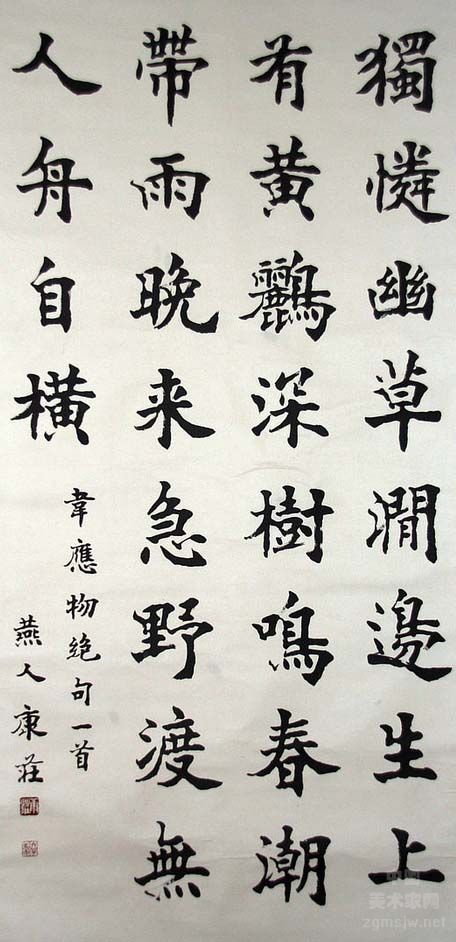 獨憐幽草澗邊生上
有黃鸝深樹鳴春潮
帶雨晚来急野渡無
人舟自橫
韋應物絶句一首
燕人康莊
中国
美术家网
zgmsjw.net